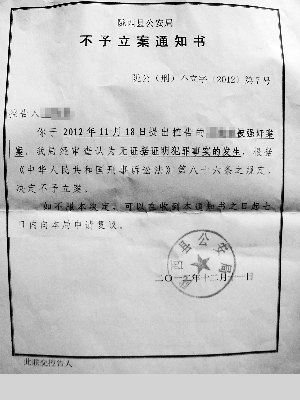 陇西县公安局
不予立案通知书
公（刑）不立字〔2012〕第7号
控告人
你于2012年11月18日提出控告的 被强奸案
案，我局经审查认为无证据证明犯罪事实的发生，根据
《中华人民共和国刑事诉讼法》第八十六条之规定，
决定不予立案。
如不服本决定，可以在收到本通知之日起七
日内向本局申请复议。
县公安局
二〇一二年十二月十一日
此联交控告人